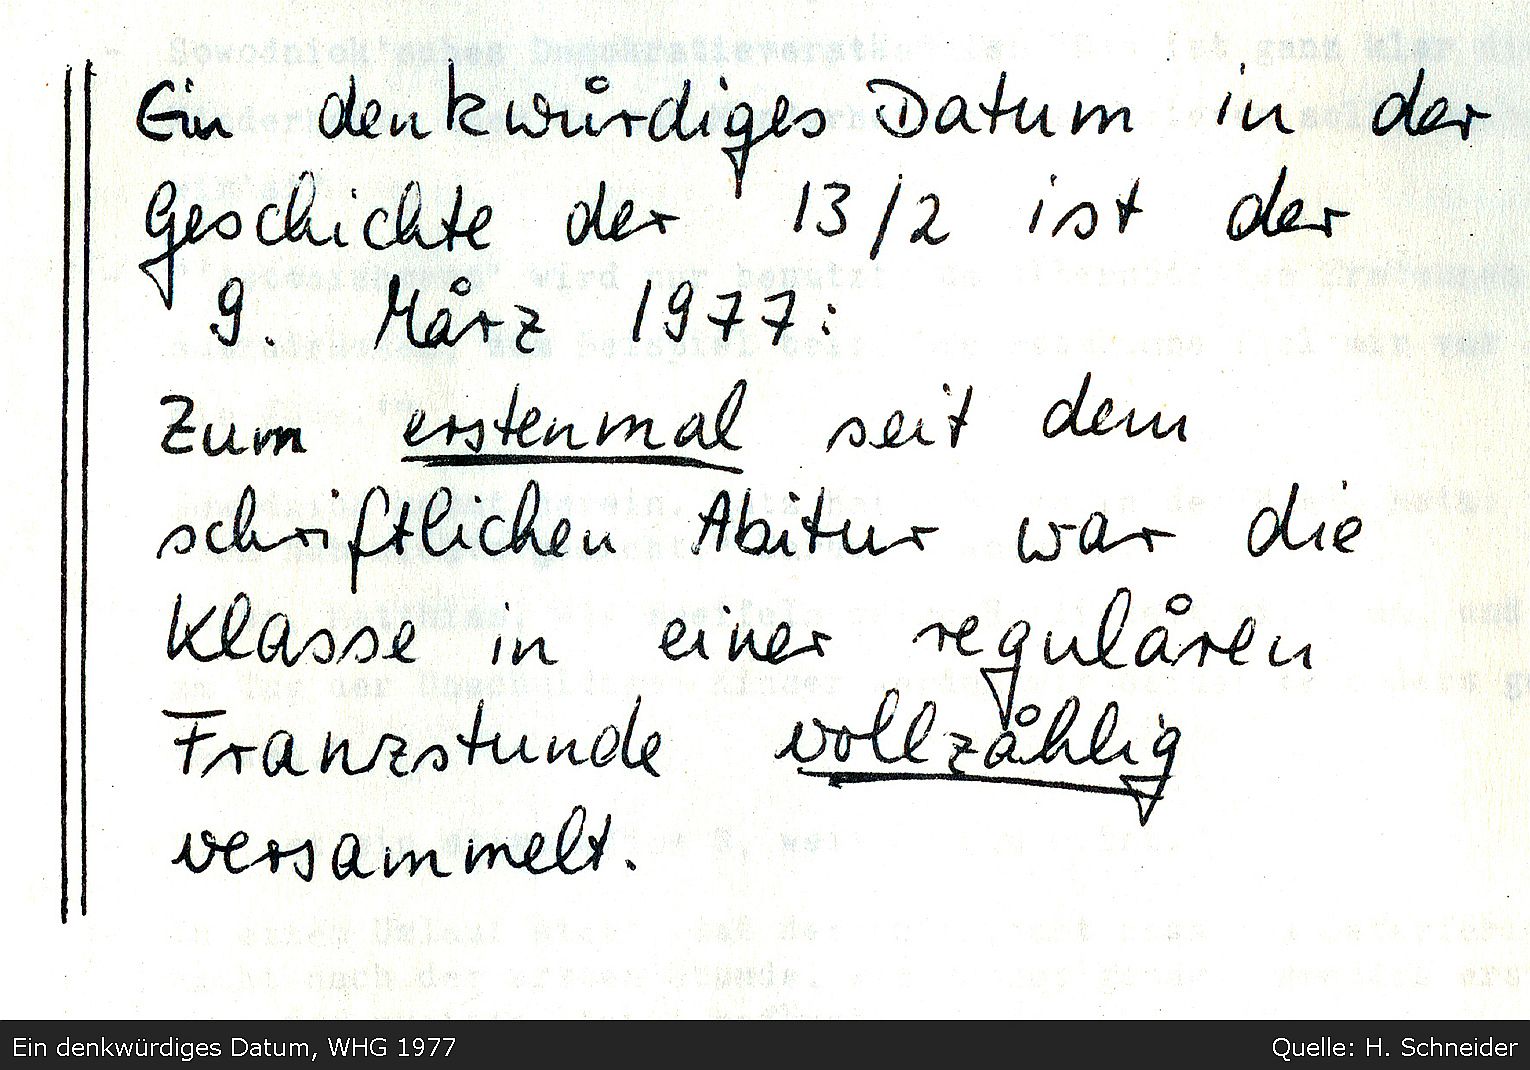 Ein denkwürdiges Datum in der
Geschichte der 13/2 ist der
9. März 1977:
Zum erstenmal seit dem
schriftlichen Abitur war die
Klasse in einer regulären
Franzstunde vollzählig
versammelt.
Ein denkwürdiges Datum, WHG 1977
Quelle: H. Schneider